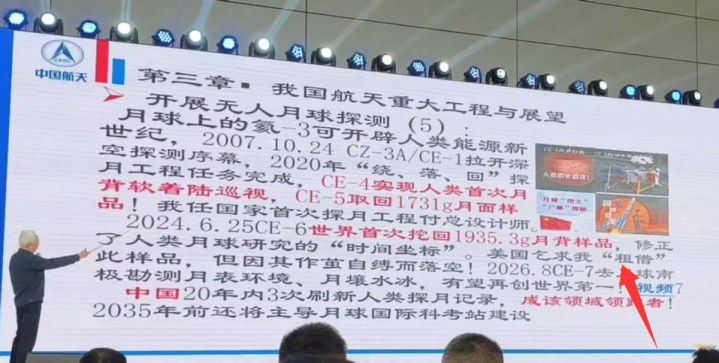 中国航天
第三章：我国航天重大工程与展望
开展无人月球探测（5）：
月球上的氦-3可开辟人类能源新
世纪，2007.10.24 CZ-3A/CE-1拉开深
空探测序幕，2020年“绕、落、回”探
月工程任务完成，CE-4实现人类首次月
背软着陆巡视，CE-5取回1731g月面样
品！我任国家首次探月工程付总设计师。
2024.6.25CE-6世界首次挖回1935.3g月背样品，修正
了人类月球研究的“时间坐标”。美国乞求我“租借”
此样品，但因其作茧自缚而落空！2026.8CE-7去月球南
极勘测月表环境、月壤水冰，有望再创世界第一！视频7
中国20年内3次刷新人类探月记录，成该领域领跑者！
2035年前还将主导月球国际科考站建设